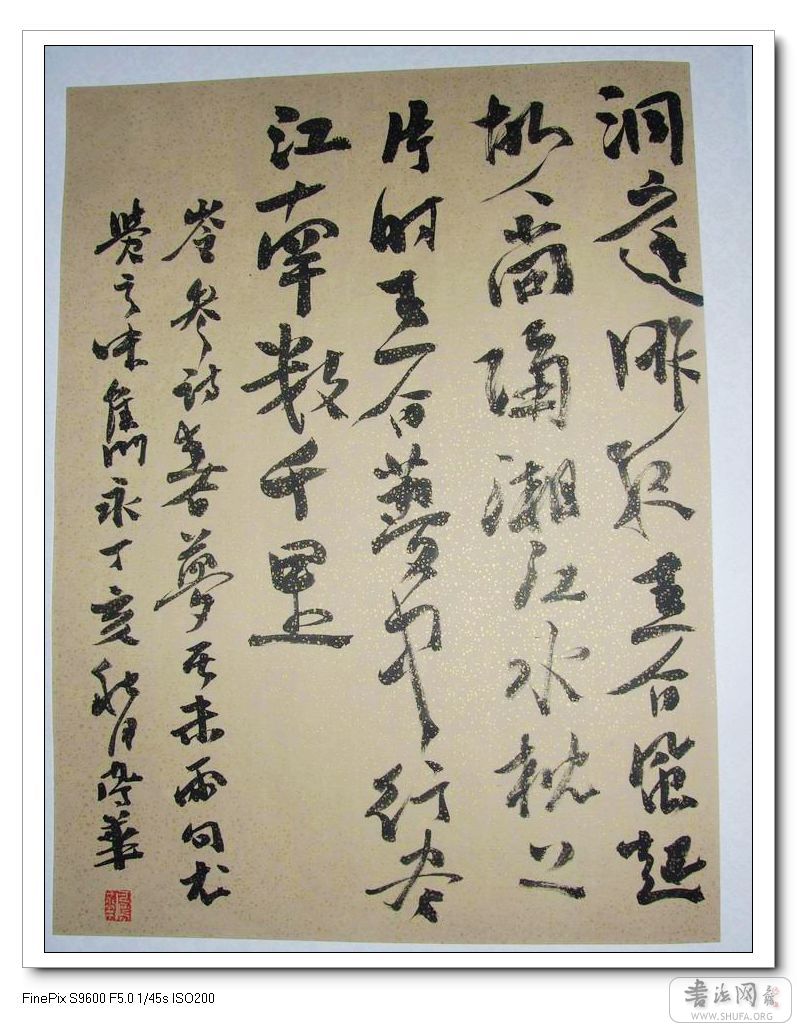 洞庭昨夜春風起
故人尚隔湘江水枕上
片时春夢中行尽
江南数千里
岑参诗春夢其末两句尤
覺味隽永丁亥秋月華
FinePix S9600 F5.0 1/45s ISO200
书法网
WWW.SHUFA.ORG